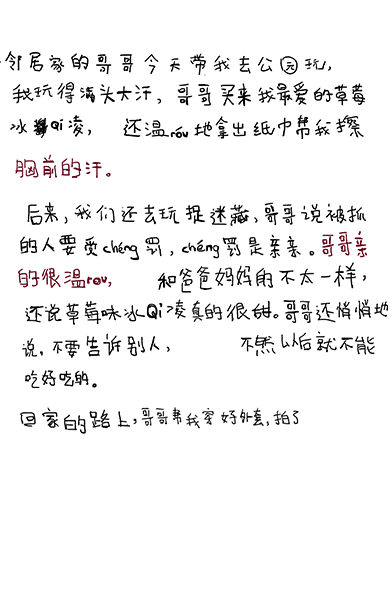 邻居家的哥哥今天带我去公园玩,
我玩得满头大汗,哥哥买来我最爱的草莓
冰Qi凌,还温róu地拿出纸巾帮我擦
胸前的汗。
后来,我们还去玩捉迷藏,哥哥说被抓
的人要受chéng罚,chéng罚是亲亲。哥哥亲
的很温rou,和爸爸妈妈的不太一样,
还说草莓味冰Qi凌真的很甜。哥哥还悄悄地
说,不要告诉别人,不然以后就不能
吃好吃的。
回家的路上,哥哥帮我穿好外套,拍了